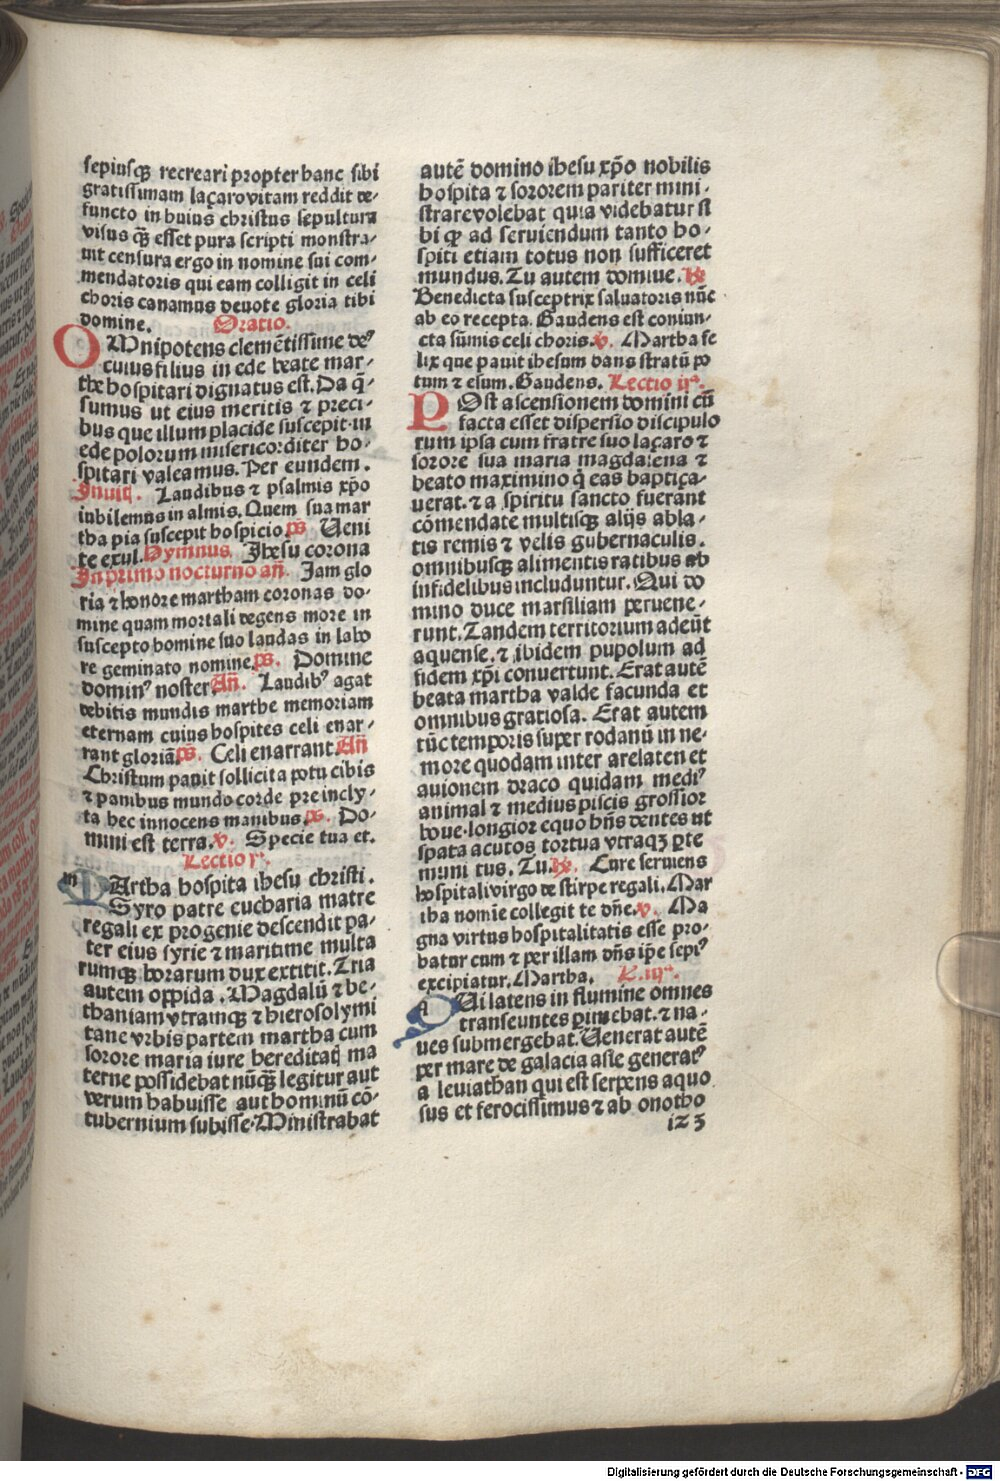 sepiusq̃ recreari propter hanc sibi
gratissimam laçaro vitam reddit de-
functo in huius christus sepultura
visus q̃ esset pura scripti monstra-
uit censura ergo in nomine sui com-
mendatoris qui eam colligit in celi
choris canamus deuote gloria tibi
domine. Oratio.
OMnipotens clemẽtissime deꝰ
cuius filius in ede beate mar-
the hospitari dignatus est. Da q̃-
sumus ut eius meritis ⁊ preci-
bus que illum placide suscepit in
ede polorum misericorditer ho-
spitari valeamus. Per eundem.
Inuit̃. Laudibus ⁊ psalmis xp̃o
iubilemus in almis. Quem sua mar
tha pia suscepit hospicio p̃s Ueni
te exul. Hymnus. Ihesu corona
In primo nocturno an̄. Iam glo
ria ⁊ honore martham coronas do-
mine quam mortali degens more in
suscepto homine suo laudas in labo
re geminato nomine. p̃s. Domine
dominꝰ noster. An̄. Laudibꝰ agat
debitis mundis marthe memoriam
eternam cuius hospites celi enar-
rant gloriã. p̃s. Celi enarrant. An̄
Christum pauit sollicita potu cibis
⁊ panibus mundo corde pre incly-
ta hec innocens manibus. p̃s. Do-
mini est terra. v. Specie tua et.
Lectio jᵃ.
MArtha hospita ihesu christi.
Syro patre eucharia matre
regali ex progenie descendit pa-
ter eius syrie ⁊ maritime multa
rumq̃ horarum dux extitit. Tria
autem oppida. Magdalũ ⁊ be-
thaniam vtramq̃ ⁊ hierosolymi
tane vrbis partem martha cum
sorore maria iure hereditaq̃ ma
terne possidebat nũq̃ legitur aut
verum habuisse aut hominũ cõ-
tubernium subisse. Ministrabat
autẽ domino ihesu xp̃o nobilis
hospita ⁊ sororem pariter mini-
strare volebat quia videbatur si
bi ꝙ ad seruiendum tanto ho-
spiti etiam totus non sufficeret
mundus. Tu autem domine. ℟
Benedicta susceptrix saluatoris nũc
ab eo recepta. Gaudens est coniun-
cta sũmis celi choris. v. Martha fe
lix que pauit ihesum dans stratũ po
tum ⁊ esum. Gaudens. Lectio ijᵃ.
POst ascensionem domini cũ
facta esset dispersio discipulo
rum ipsa cum fratre suo laçaro ⁊
sorore sua maria magdalena ⁊
beato maximino q̃ eas baptiça-
uerat. ⁊ a spiritu sancto fuerant
cõmendate multisq̃ alijs abla-
tis remis ⁊ velis gubernaculis.
omnibusq̃ alimentis ratibus ab
infidelibus includuntur. Qui do
mino duce marsiliam peruene-
runt. Tandem territorium adeũt
aquense. ⁊ ibidem pupolum ad
fidem xp̃i conuertunt. Erat autẽ
beata martha valde facunda et
omnibus gratiosa. Erat autem
tũc temporis super rodanũ in ne-
more quodam inter arelaten et
auionem draco quidam mediꝰ
animal ⁊ medius piscis grossior
boue. longior equo hñs dentes ut
spata acutos tortua vtraqꝫ ꝑte
muni tus. Tu. ℟. Cure seruiens
hospitali virgo de stirpe regali. Mar
tha nomĩe collegit te dñe. v. Ma
gna virtus hospitalitatis esse pro-
batur cum ⁊ per illam dñs ip̃e sepiꝰ
excipiatur. Martha. L. iijᵃ.
QUi latens in flumine omnes
transeuntes ꝑimebat. ⁊ na-
ues submergebat. Uenerat autẽ
per mare de galacia asie generatꝰ
a leuiathan qui est serpens aquo
sus et ferocissimus ⁊ ab onotho
iz3
Digitalisierung gefördert durch die Deutsche Forschungsgemeinschaft - DFG